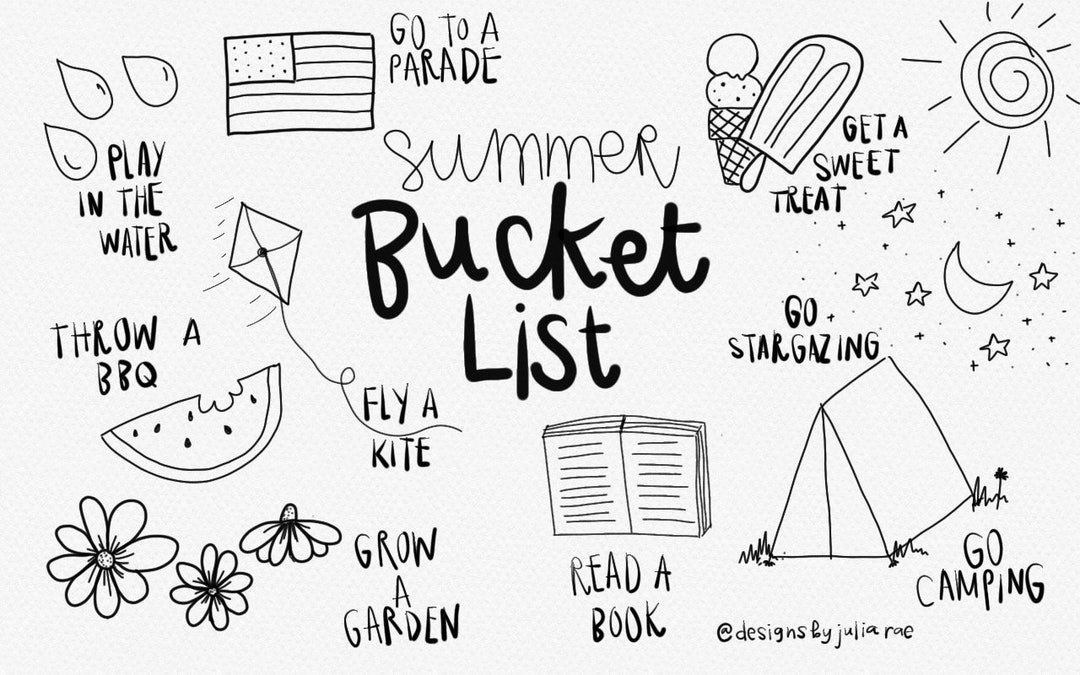 GO TO A
PARADE
summer
Bucket
List
GET A
SWEET
TREAT
PLAY
IN THE
WATER
THROW A
BBQ
FLY A
KITE
GO
STARGAZING
GROW
A
GARDEN
READ A
BOOK
GO
CAMPING
@designsbyjuliarae